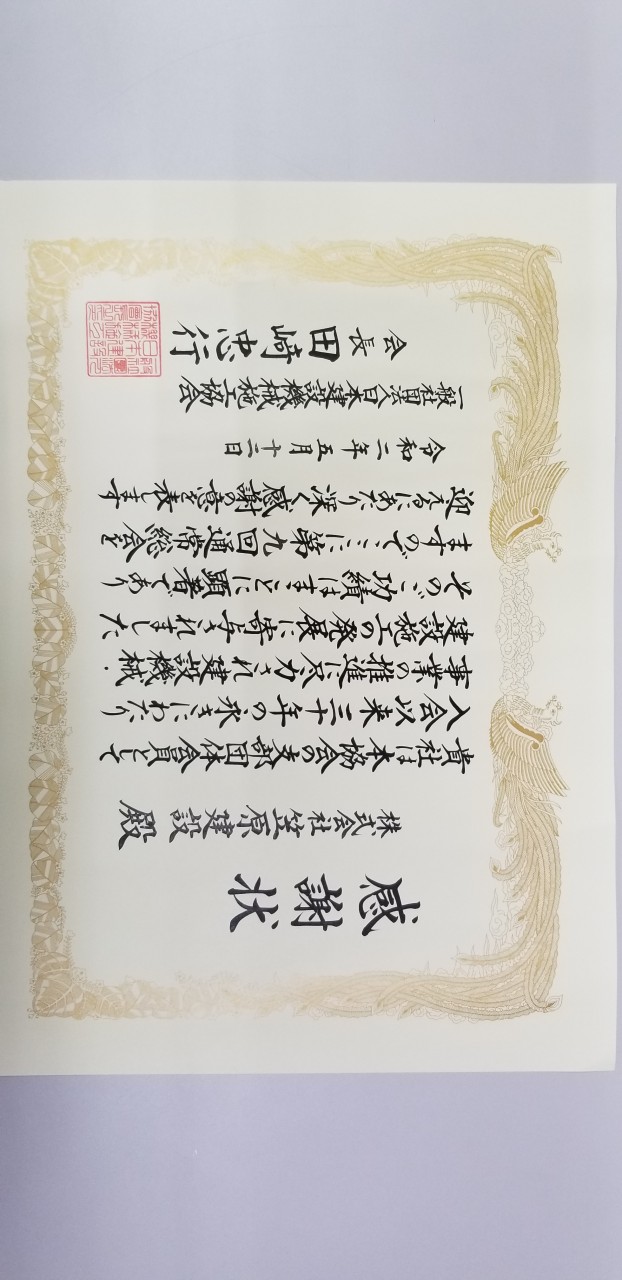 感謝状
株式会社笠原建設 殿
貴社は本協会の支部団体会員として
入会以来三十年の永きにわたり
事業の推進に尽力され建設機械・
建設施工の発展に寄与されました
そのご功績はまことに顕著であり
ますのでここに第九回通常総会を
迎えるにあたり深く感謝の意を表します
令和二年五月十二日
一般社団法人日本建設機械施工協会
会長 田﨑忠行